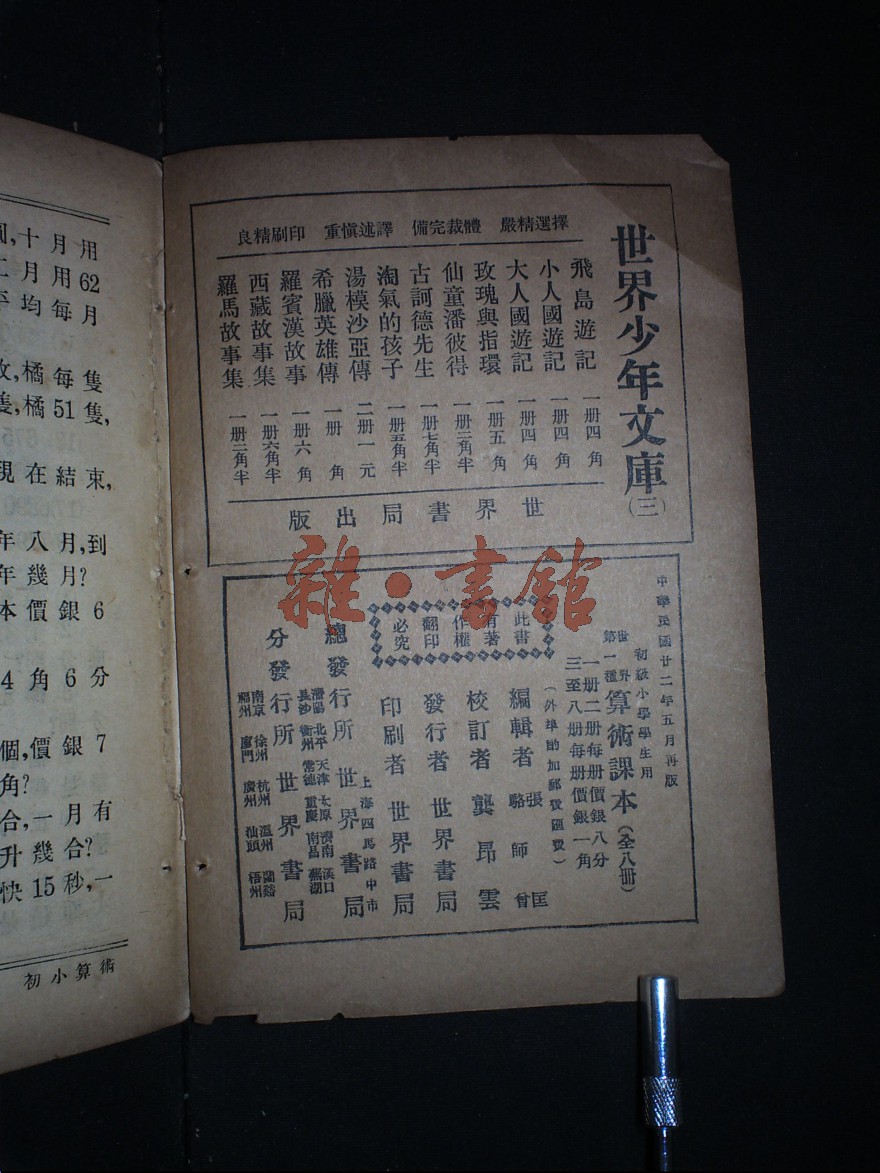 圓,十月用
二月用62
平均每月
枚,橘每隻
隻,橘51隻,
現在結束,
年八月,到
年幾月?
本價銀6
4角6分
個,價銀7
角?
合,一月有
升幾合?
快15秒,一
初小算術
世界少年文庫(三)
擇選精嚴 體裁完備 譯述愼重 印刷精良
飛島遊記 一册四角
小人國遊記 一册四角
大人國遊記 一册四角
玫瑰與指環 一册五角
仙童潘彼得 一册三角半
古訶德先生 一册七角半
淘氣的孩子 一册五角半
湯模沙亞傳 二册一元
希臘英雄傳 一册 角
羅賓漢故事 一册六角
西藏故事集 一册六角半
羅馬故事集 一册二角半
世界書局出版
雜·書館
中華民國廿二年五月再版
初級小學學生用
世界第一種 算術課本(全八册)
一册二册每册價銀八分
三至八册每册價銀一角
(外埠酌加郵費匯費)
此書有著作權翻印必究
編輯者 張匡 駱師曾
校訂者 龔昂雲
發行者 世界書局
印刷者 世界書局
總發行所 上海四馬路中市 世界書局
分發行所 世界書局
瀋陽 北平 天津 太原 濟南 漢口
長沙 衡州 常德 重慶 南昌 蕪湖
南京 徐州 杭州 溫州 蘭谿
福州 廈門 廣州 汕頭 梧州